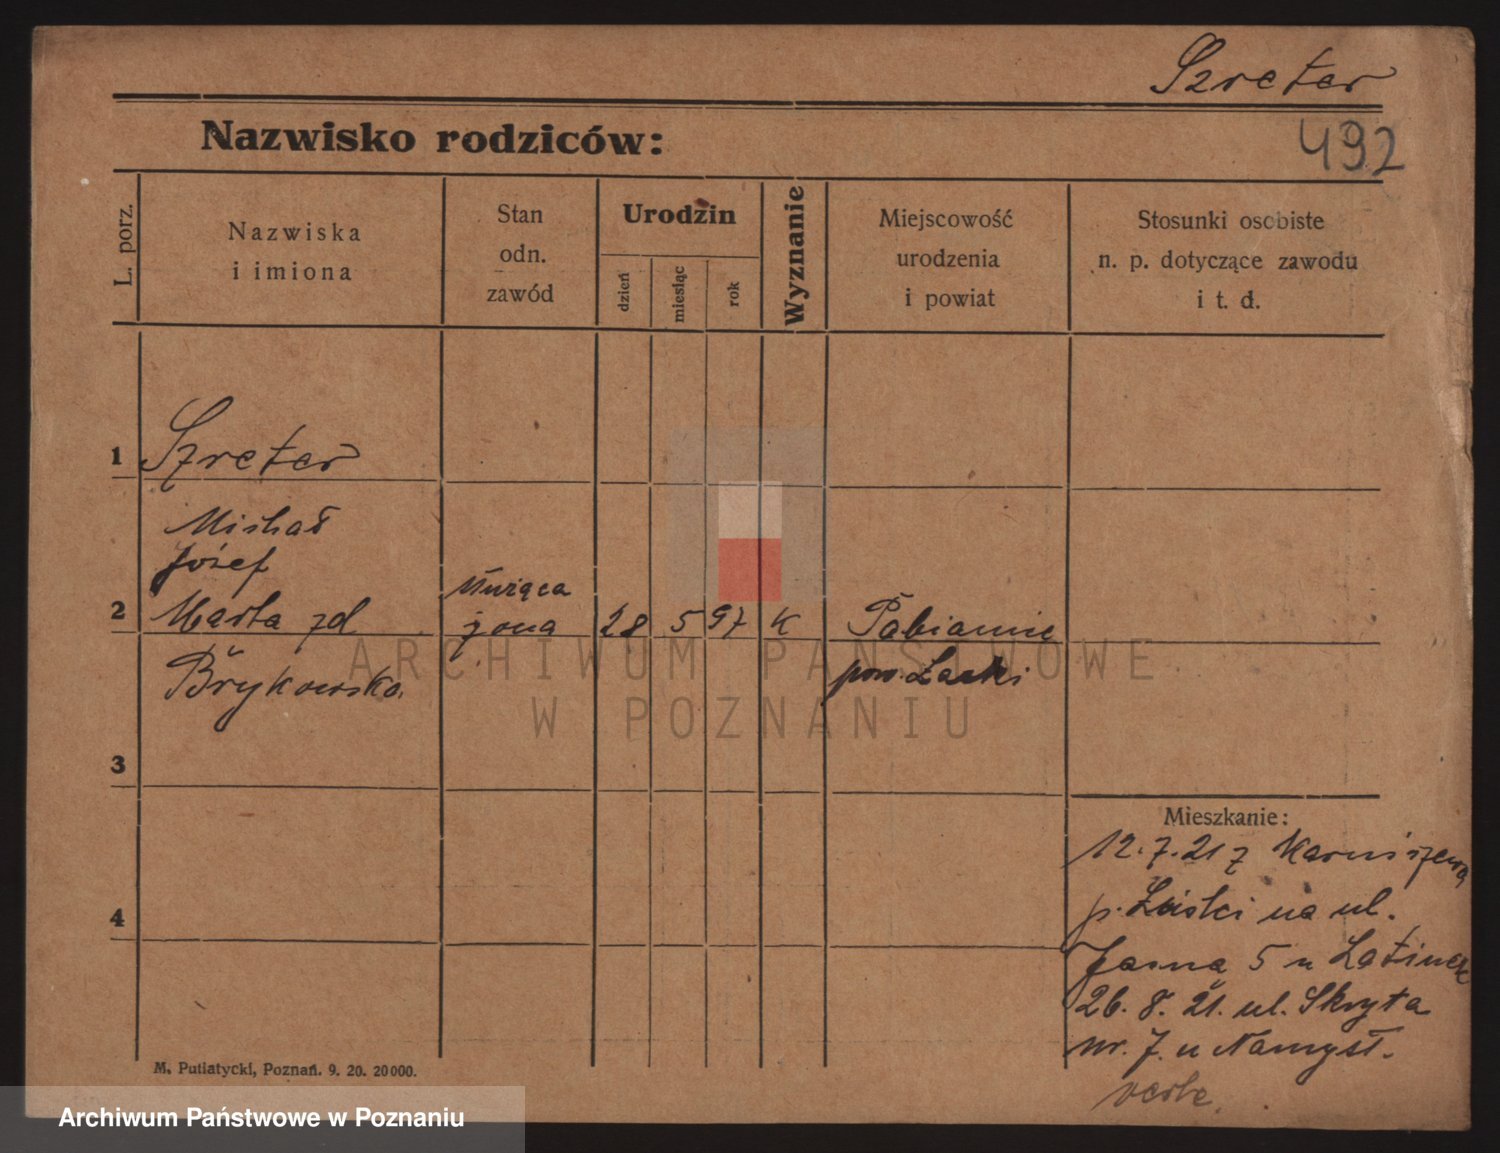 Szreter
Nazwisko rodziców:
492
L. porz.
Nazwiska
i imiona
Stan
odn.
zawód
Urodzin
dzień
miesiąc
rok
Wyznanie
Miejscowość
urodzenia
i powiat
Stosunki osobiste
n. p. dotyczące zawodu
i t. d.
1 Szreter
Michał
Józef
2 Marta zd służąca żona 28 5 97 K Pabianice
Brykowska pow. Łaski
3
4
Mieszkanie:
12.7.21 z Karniszewa
p. Łaski na ul.
Jasną 5 u
26.8.21. ul. Skryta
nr. 7. u Namysł.
verte.
M. Putiatycki, Poznań. 9. 20. 20000.
ARCHIWUM PAŃSTWOWE
W POZNANIU
Archiwum Państwowe w Poznaniu